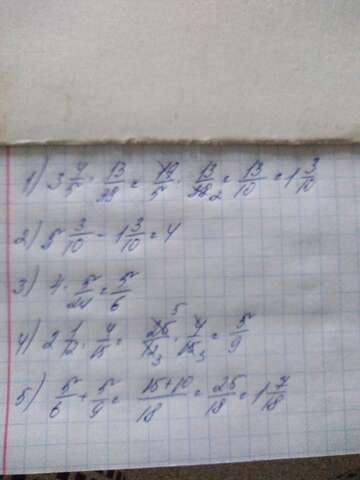 1) 3 4/5 · 13/38 = 19/5 · 13/38 2 = 13/10 = 1 3/10
2) 5 3/10 - 1 3/10 = 4
3) 4 · 5/24 = 5/6
4) 2 1/12 · 4/15 = 25 5/12 3 · 4/15 3 = 5/9
5) 5/6 + 5/9 = 15+10/18 = 25/18 = 1 7/18